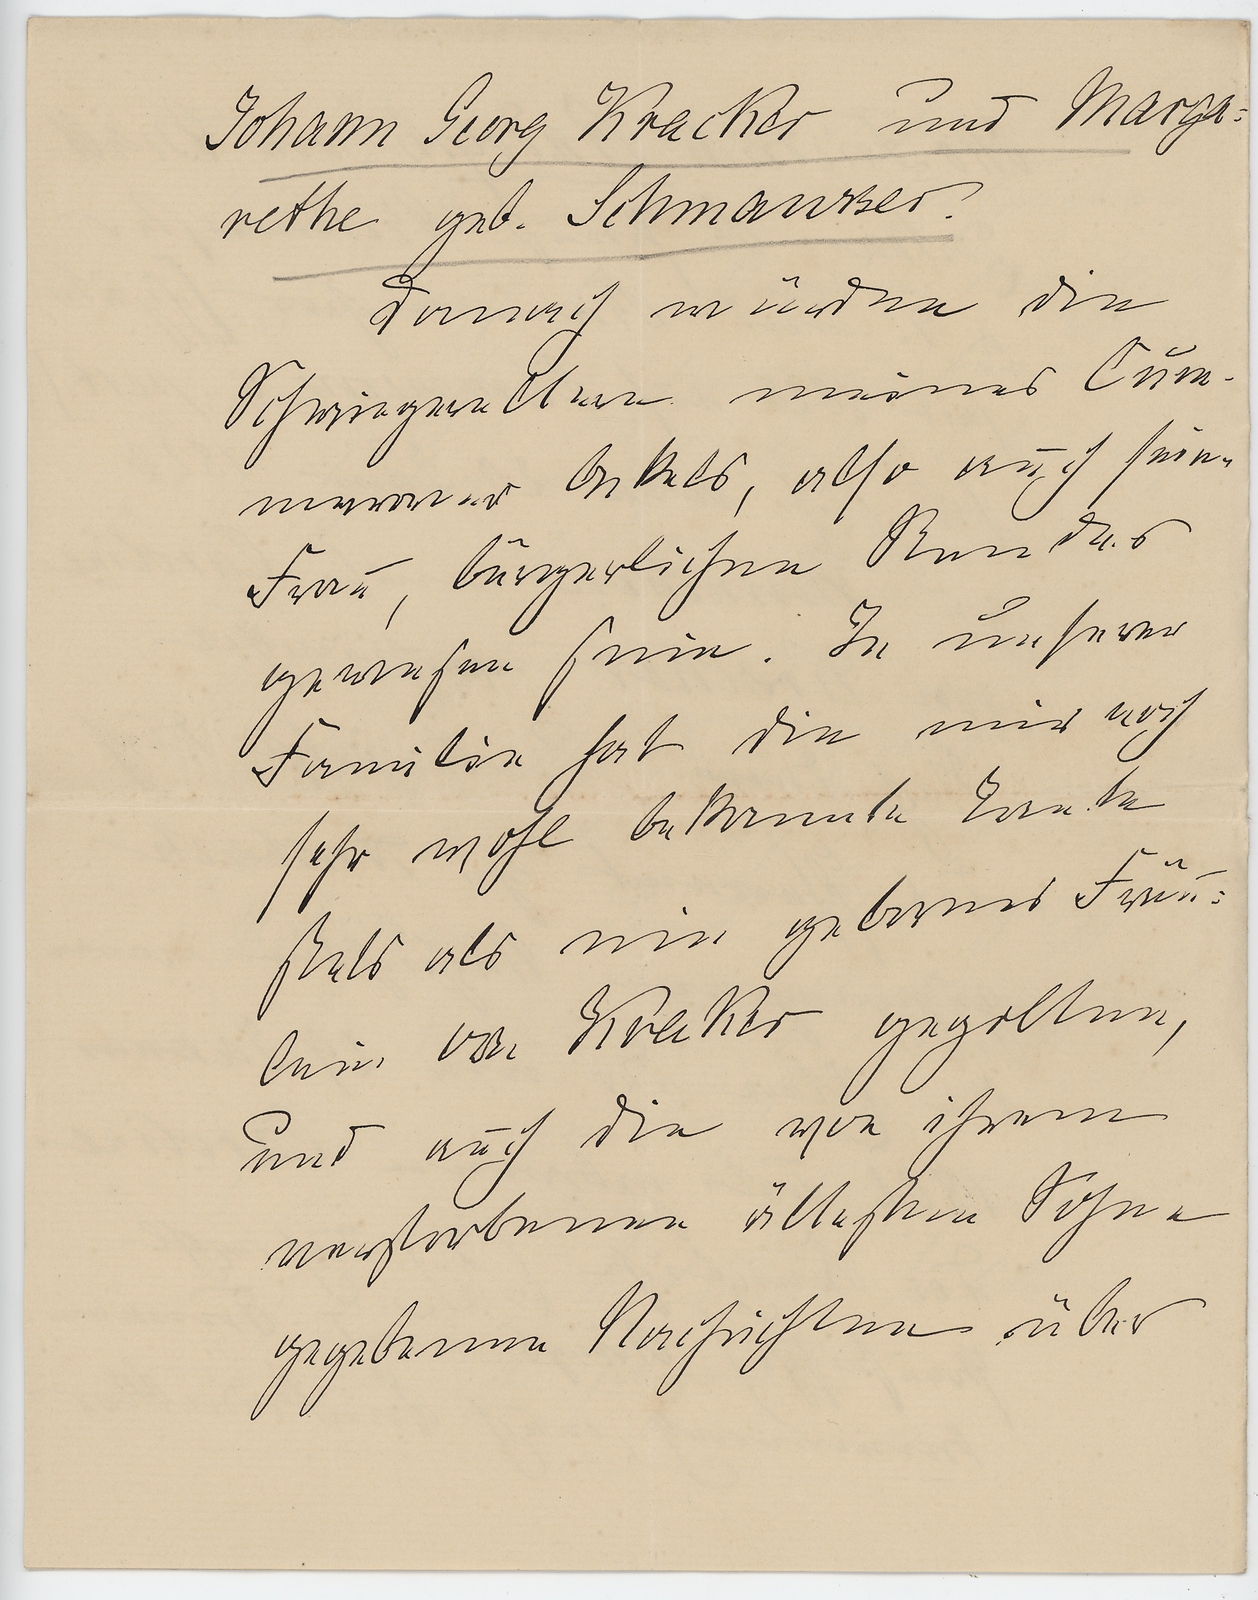 Johann Georg Kracker und Marga=
rethe geb. Schmauser.
Danach würden die
Schwiegereltern meines
Onkels, also auch seine
Frau, bürgerlichen Standes
gewesen sein. In unserer
Familie hat die mir noch
sehr wohl bekannte Tante
stets als ein gebornes Fräu=
lein von Kraker gegolten,
und auch die von ihrem
verstorbenen ältesten Sohne
gegebenen Nachrichten über